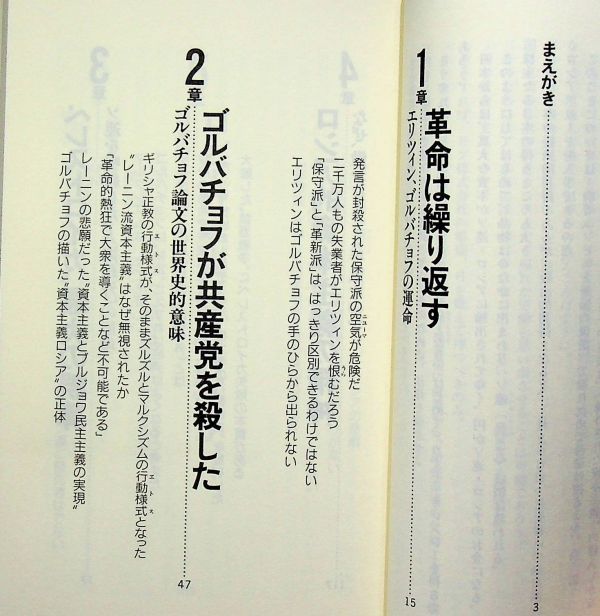 まえがき 3
1章 革命は繰り返す
エリツィン、ゴルバチョフの運命 15
発言が封殺された保守派の空気が危険だ
二千万人もの失業者がエリツィンを恨むだろう
「保守派」と「革新派」は、はっきり区別できるわけではない
エリツィンはゴルバチョフの手のひらから出られない
2章 ゴルバチョフが共産党を殺した
ゴルバチョフ論文の世界史的意味 47
ギリシャ正教の行動様式が、そのままズルズルとマルクシズムの行動様式となった
"レーニン流資本主義"はなぜ無視されたか
「革命的熱狂で大衆を導くことなど不可能である」
レーニンの悲願だった"資本主義とブルジョワ民主主義の実現"
ゴルバチョフの描いた"資本主義ロシア"の正体